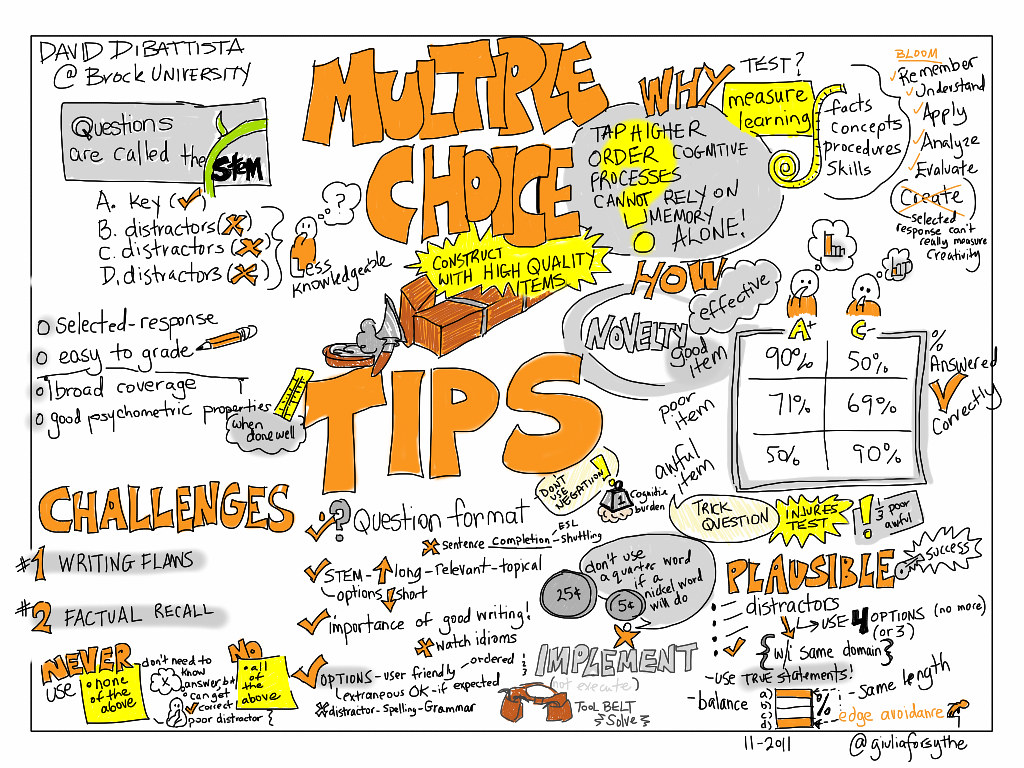 DAVID DiBATTISTA
@ BROCK UNIVERSITY
Questions
are called the
STEM
A. key (✓)
B. distractors (x)
C. distractors (x)
D. distractors (x)
?
Less
knowledgeable
o selected-response
o easy to grade
o broad coverage
o good psychometric properties
when
done well
MULTIPLE
CHOICE
CONSTRUCT
WITH HIGH QUALITY
ITEMS
TIPS
WHY
TEST?
measure
learning
facts
concepts
procedures
skills
TAP HIGHER
ORDER COGNITIVE
PROCESSES
CANNOT RELY ON
MEMORY
ALONE!
BLOOM
Remember
Understand
Apply
Analyze
Evaluate
Create
selected
response can't
really measure
creativity
HOW
effective
NOVELTY
good
item
poor
item
awful
item
A+ C-
90% 50%
71% 69%
50% 90%
%
Answered
Correctly
TRICK
QUESTION
INJURES
TEST
! 1/3 poor
awful
CHALLENGES
#1 WRITING FLAWS
#2 FACTUAL RECALL
NEVER
use
• none
of the
above
don't need to
know
answer, but
can get
correct
poor distractor
x
NO
• all
of the
above
DON'T
USE
NEGATION
!
1
Cognitive
burden
? Question format
x Sentence completion - ESL
shuttling
STEM - long - relevant - topical
options short
Importance of good writing!
x watch idioms
OPTIONS - user friendly
ordered
extraneous OK - if expected
x distractor - Spelling - Grammar
don't use
a quarter word
if a
nickel word
will do
25¢
5¢
IMPLEMENT
(not execute)
TOOL BELT
Solve
PLAUSIBLE
success
distractors
USE 4 OPTIONS (no more)
(or 3)
{w/i same domain}
- use TRUE statements!
- balance
a)
b)
c)
d)
%
- same length
edge avoidance
11-2011
@giuliaforsythe